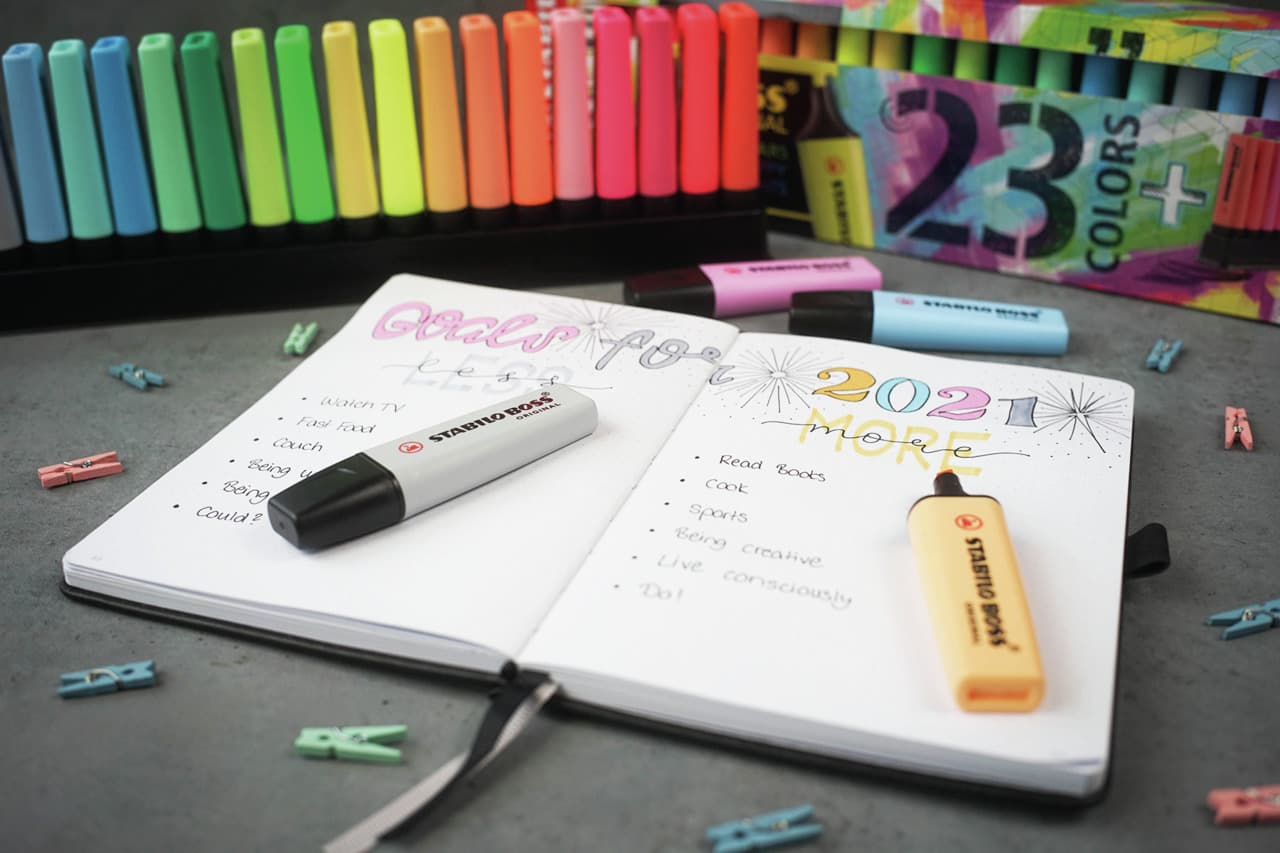 BOSS
23
COLORS
+
STABILO BOSS
STABILO BOSS
Goals for
LESS
less
• Watch TV
• Fast Food
• Couch
• Being
• Being
• Could?
STABILO BOSS
ORIGINAL
2021
MORE
more
• Read Books
• Cook
• Sports
• Being creative
• Live consciously
• Do!
STABILO BOSS
ORIGINAL